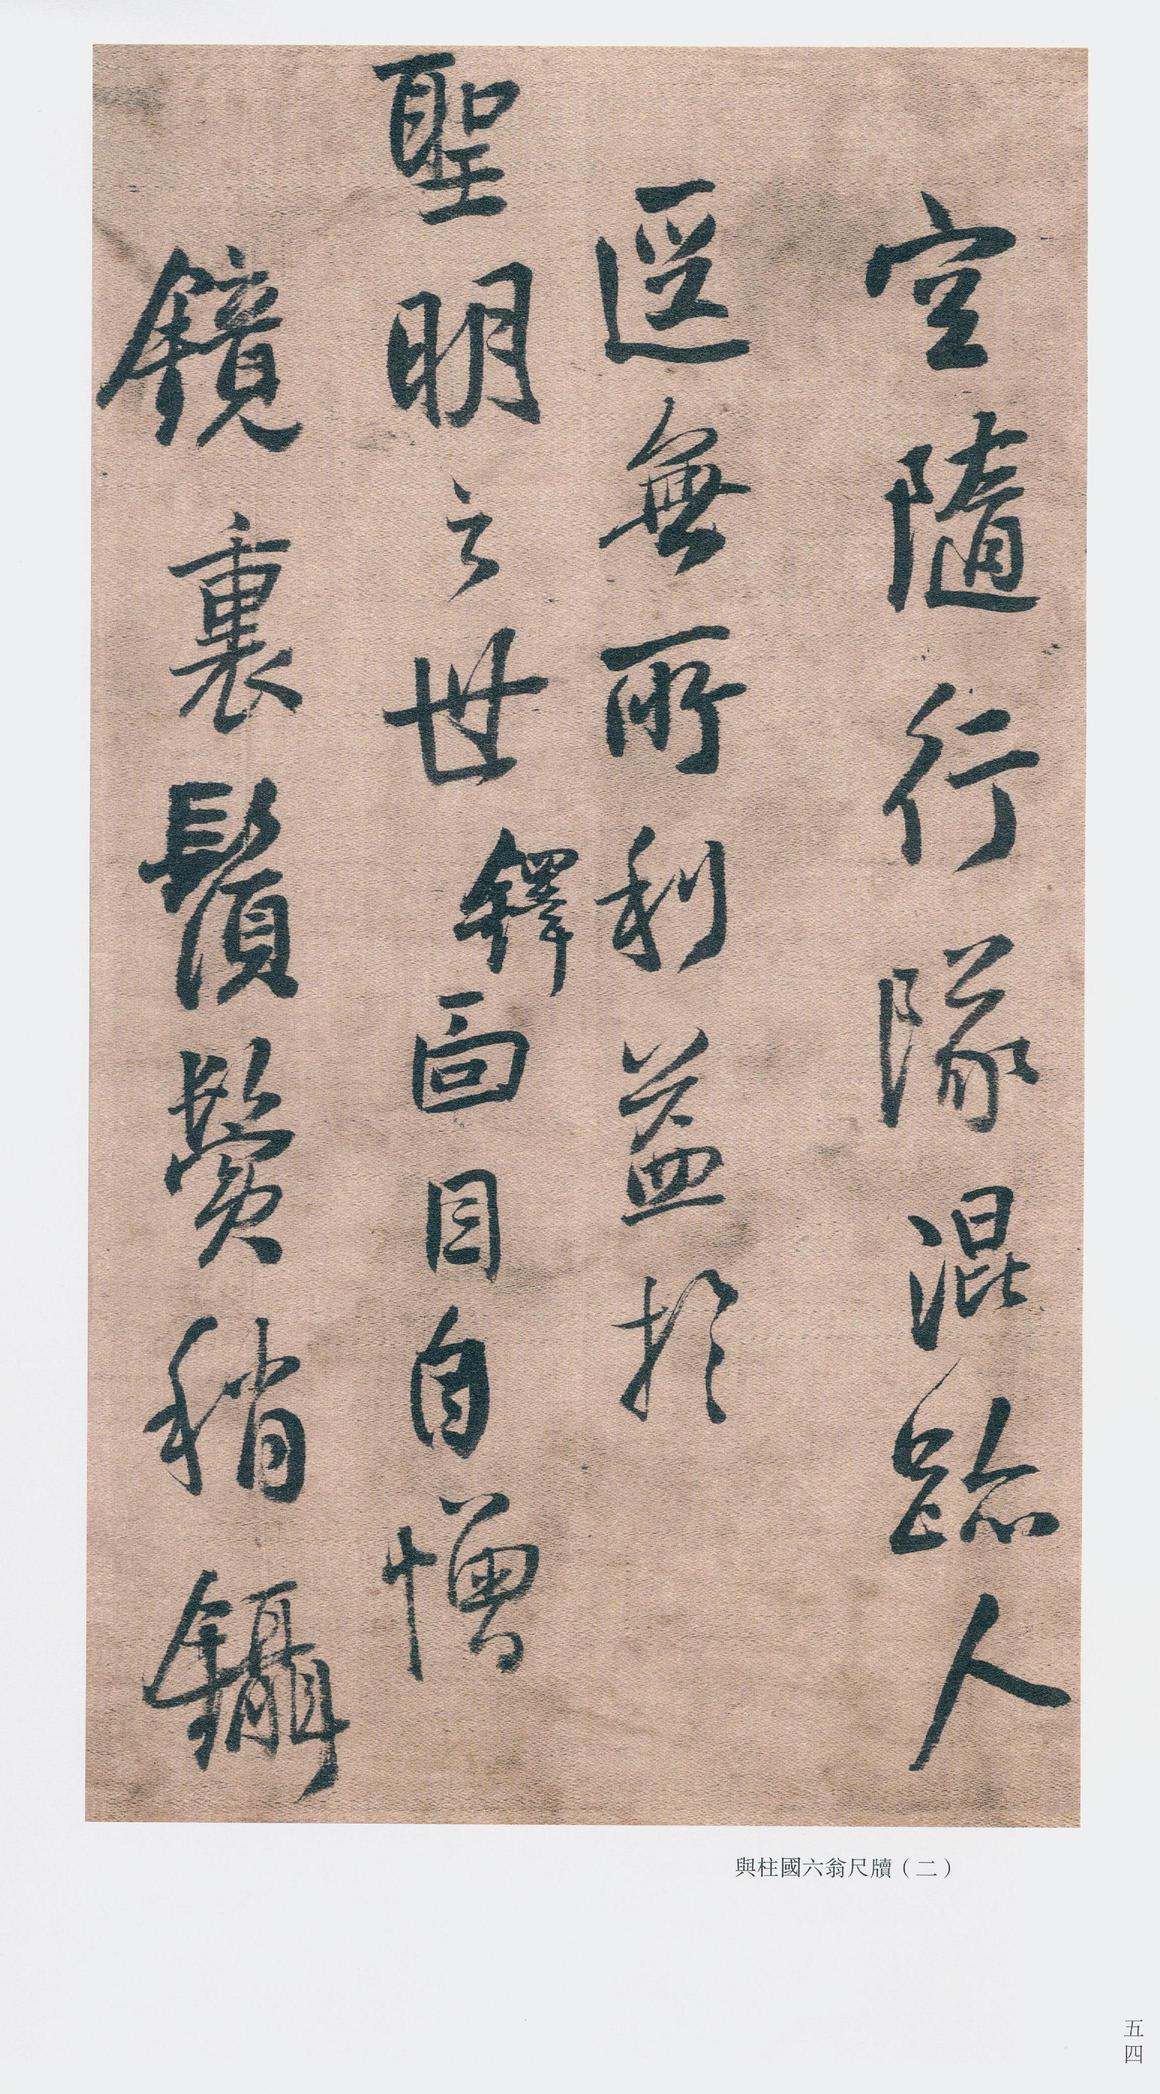 空隨行隊混跡人
無所利益於
聖明之世鐸面目自憎
鏡裏鬚鬢稍鑷
與柱國六翁尺牘（二）
五四